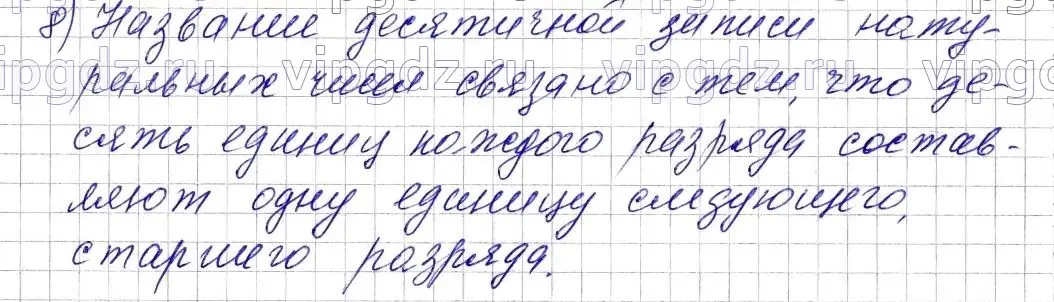 8) Название десятичной записи нату-
ральных чисел связано с тем, что де-
сять единиц каждого разряда состав-
ляют одну единицу следующего,
старшего разряда.